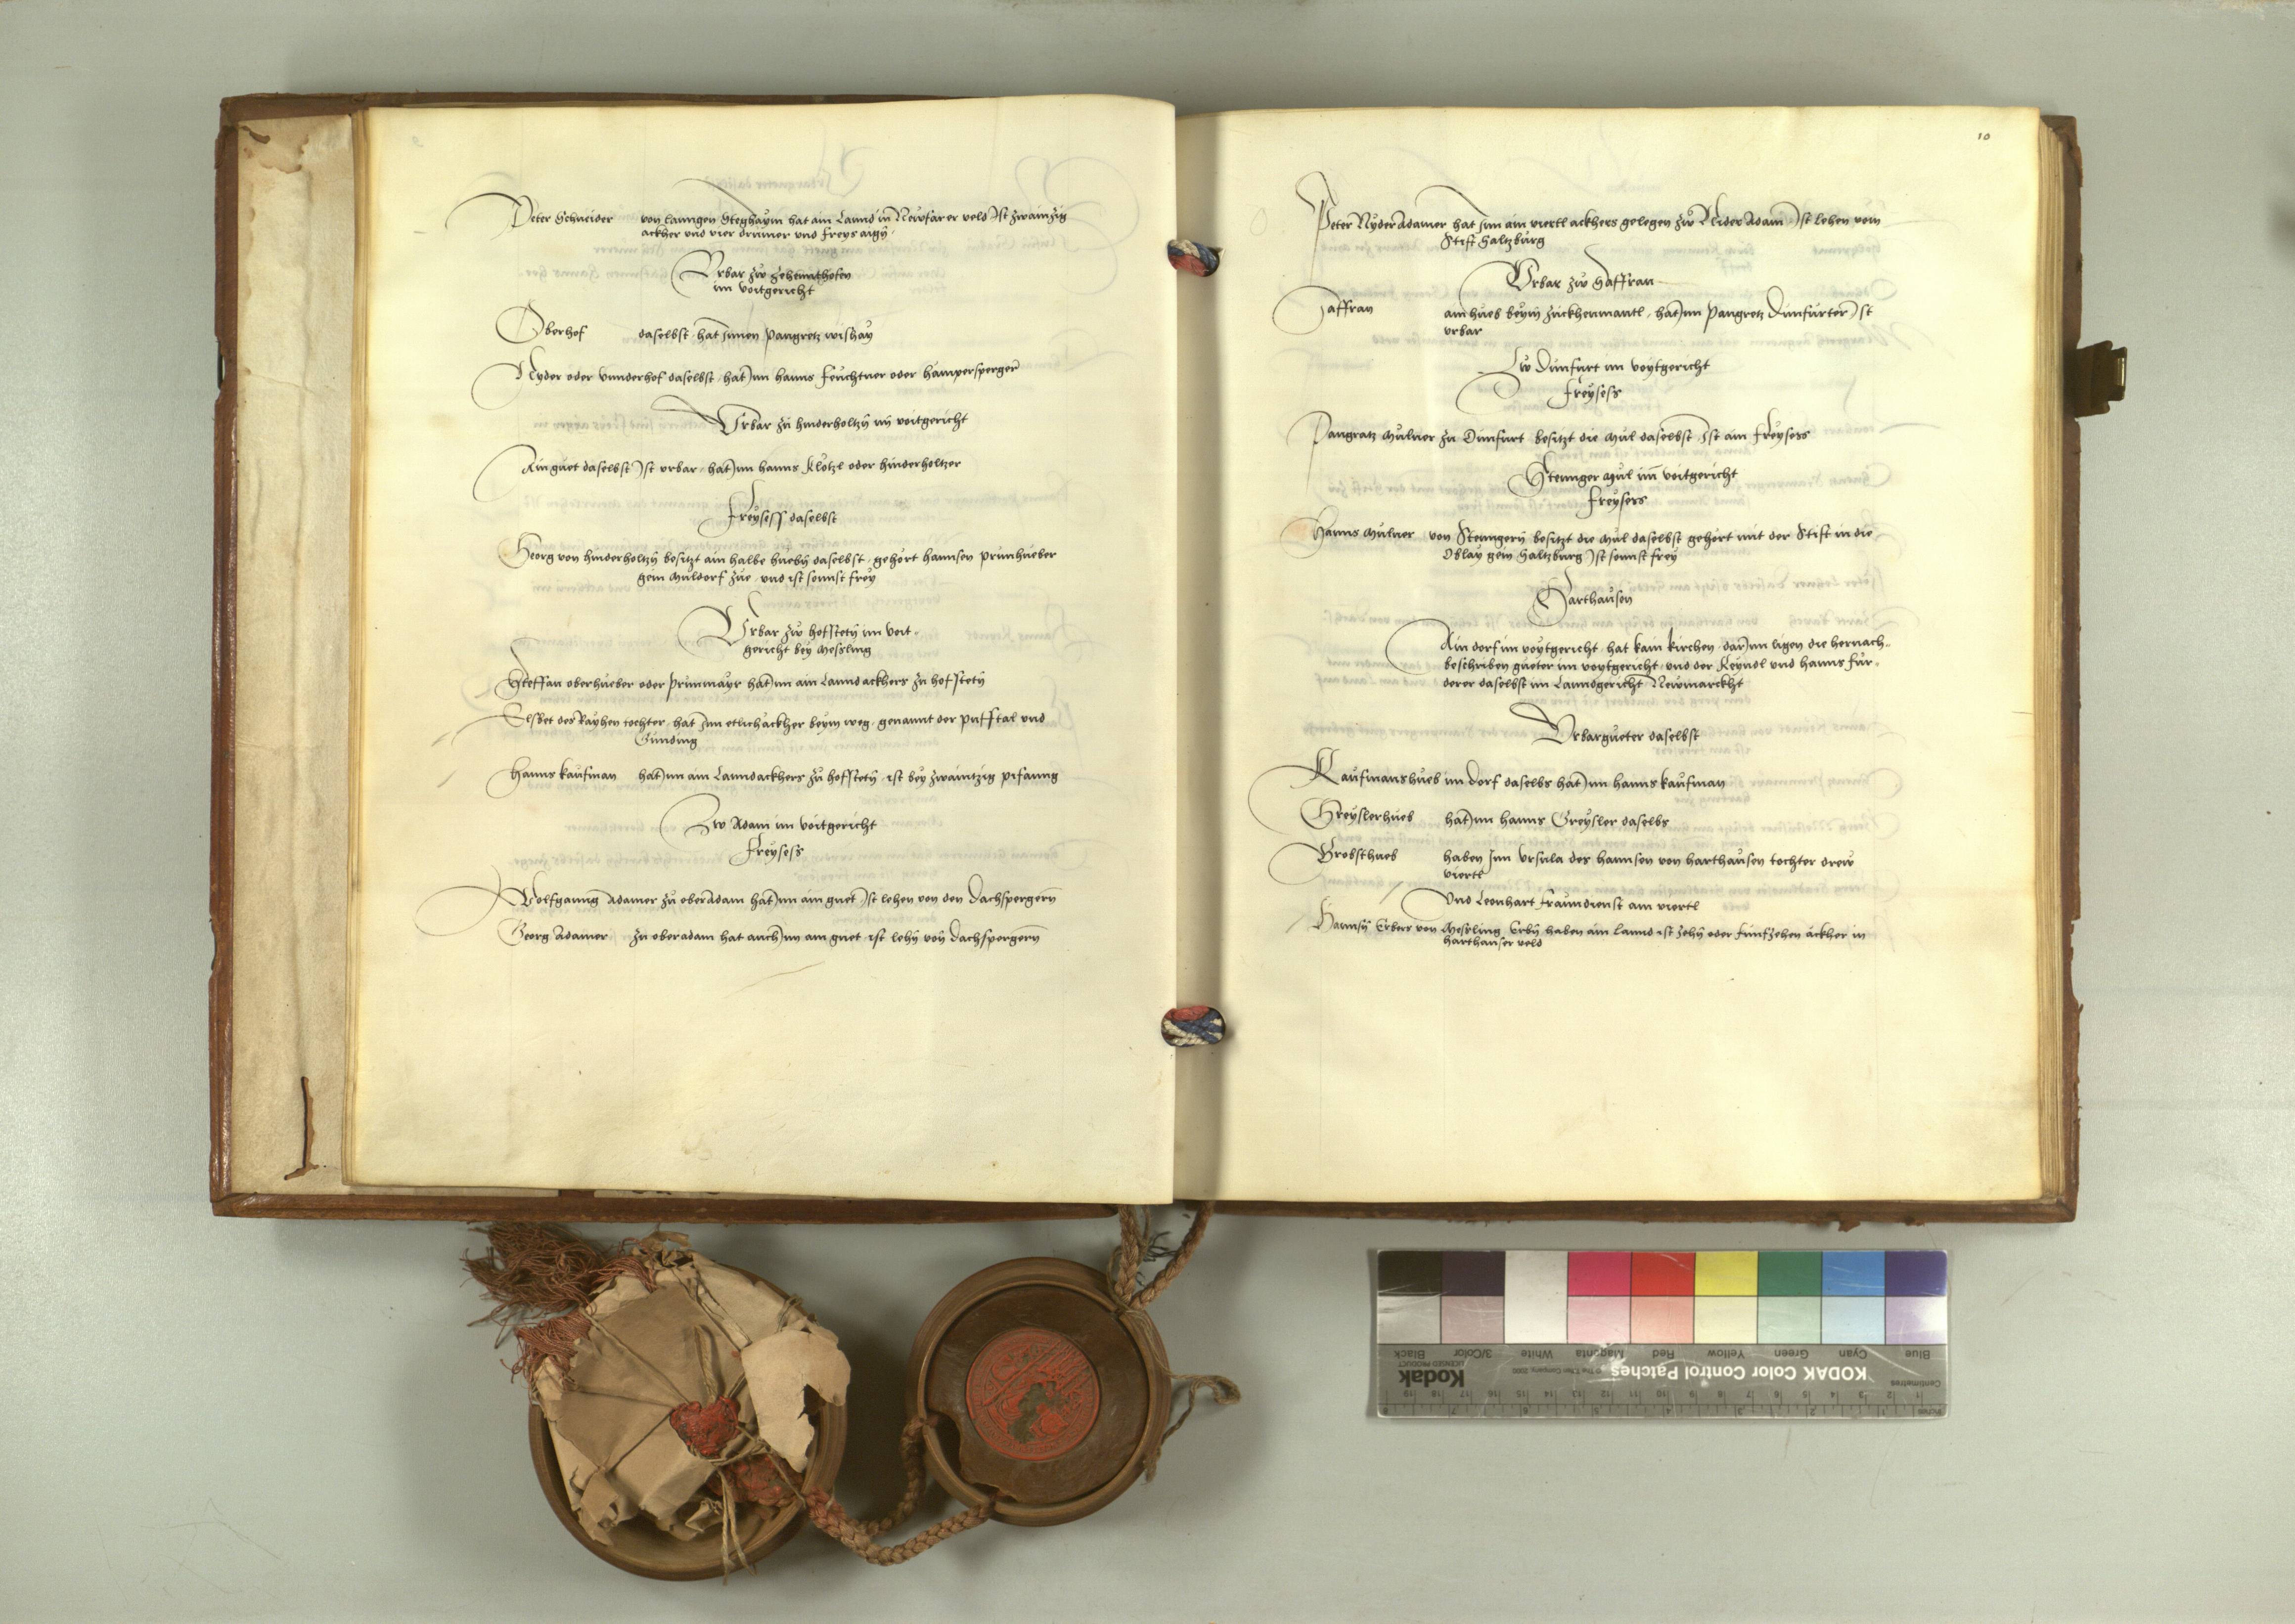 Peter Schneider von lanngen Steghaym hat ain Lannd in Newfarer veld Ist zwainzig
ackher und vier drumer und freys aigñ
Urbar zw
im voitgericht
Oberhof daselbst hat Innen Pangretz wishay
Nyder oder Unnderhof daselbst hat Inn hanns feuchtner oder hampersperger
Urbar zu hinderholtzñ im voitgericht
Ain guet daselbst Ist urbar hat Inn hanns Klötzl oder hinderholtzer
Freysess daselbst
Georg von hinderholtzñ besitzt ain halbe huebñ daselbst gehört hannsen prunhueber
gein Müldorf zue und ist sonnst frey
Urbar zw hofstetñ im voit-
gericht bey Messling
Steffan oberhueber oder prunmayr hat Inn ain Lanndackhers zu hofstetñ
Elsbet des Rayhen tochter hat Inn etlich ackher beym weg genannt der putstal und
Gunding
Hanns Kaufman hat Inn ain Lanndackhers zu hofstetñ ist bey zwaintzig pifanng
Zw Adam im voitgericht
Freysess
Wolfganng Adamer zu oberAdam hat Inn ain guet Ist lehen von den Dachspergern
Georg Adamer zu oberadam hat auch Inn ain guet ist lehñ von Dachspergern
10
Peter NyderAdamer hat Inn ain viertl ackhers gelegen zw NiderAdam Ist lehen vom
Stift Saltzburg
Urbar zw Saffran
Saffran ain hueb beym zuckhenmantl hat Inn Pangretz Dunfurter Ist
urbar
Zw Dunfurt im voytgericht
Freysess
Pangratz Mulner zu Dunfurt besitzt die Mul daselbst Ist ain freysess
Stennger Mul im voitgericht
Freysess
Hanns Mulner von Stenngerñ besitzt die Mul daselbst gehört mit der Stift in die
Oblay gein Saltzburg Ist sonnst frey
Harthausen
Ain dorf im voytgericht hat kain kirchen darInn ligen die hernach-
beschriben gueter im voytgericht und der Reyndl und hanns für-
derer daselbst im Lanndgericht Newmarckht
Urbargueter daselbst
Kaufmanshueb im dorf daselbs hat Inn hanns Kaufman
Greyslerhueb hat Inn hanns Greysler daselbs
Grobschueb haben Inn Ursula der hannsen von harthausen tochter drew
viertl
Und Leonhart frawndienst ain viertl
Hannsñ Erbers von Messling Erbñ haben ain lannd ist zehñ oder funfzehen ackher in
harthauser veld
KODAK Color Control Patches
Kodak
LICENSED PRODUCT
Blue Cyan Green Yellow Red Magenta White 3/Color Black
Centimetres
Inches